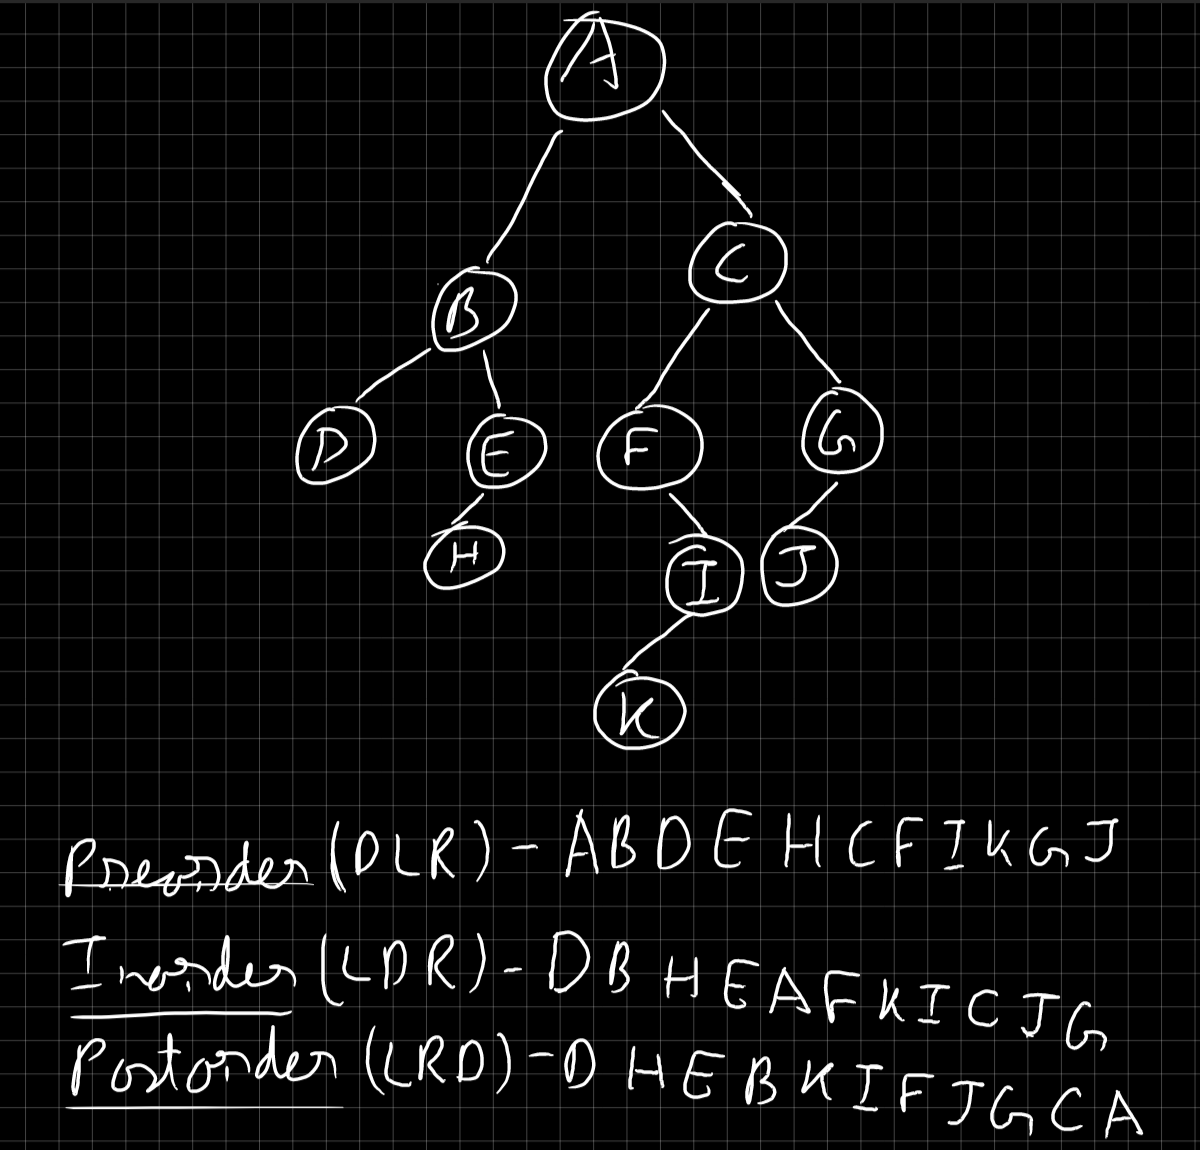 A
C
B
D E F G
H I J
K
Preorder (DLR) - A B D E H C F I K G J
Inorder (LDR) - D B H E A F K I C J G
Postorder (LRD) - D H E B K I F J G C A